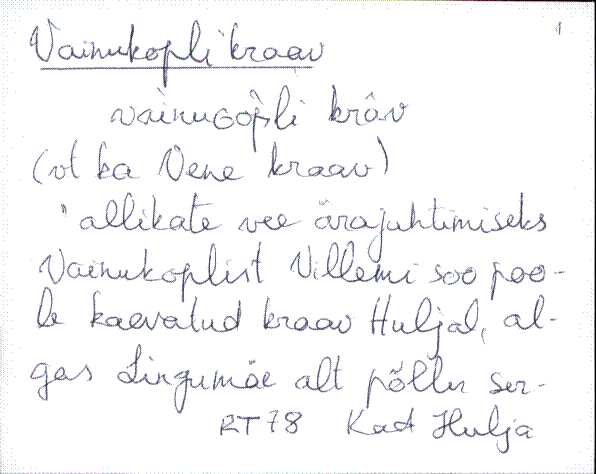 1
Vainukopli kraav
vainuGòp̀li krâv
(vt ka Vene kraav)
' allikate vee ärajuhtimiseks
Vainukoplist Villemi soo poo-
le kaevatud kraav Huljal, al-
gas Lingumäe alt põllu ser-
RT78 Kad Hulja